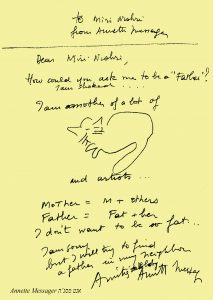 to Miri Nishri
from Annette Messager
Dear Miri Nishri,
How could you ask me to be a "Father"?
I am shaked .....
I am a mother of a lot of
and artists ...
Mother = M + others
Father = Fat + her
I don't want to be so fat ...
I am sorry
but I will try to find
a father in my neighbour
Annette Messager
Annette Messager אנט מסג'ה